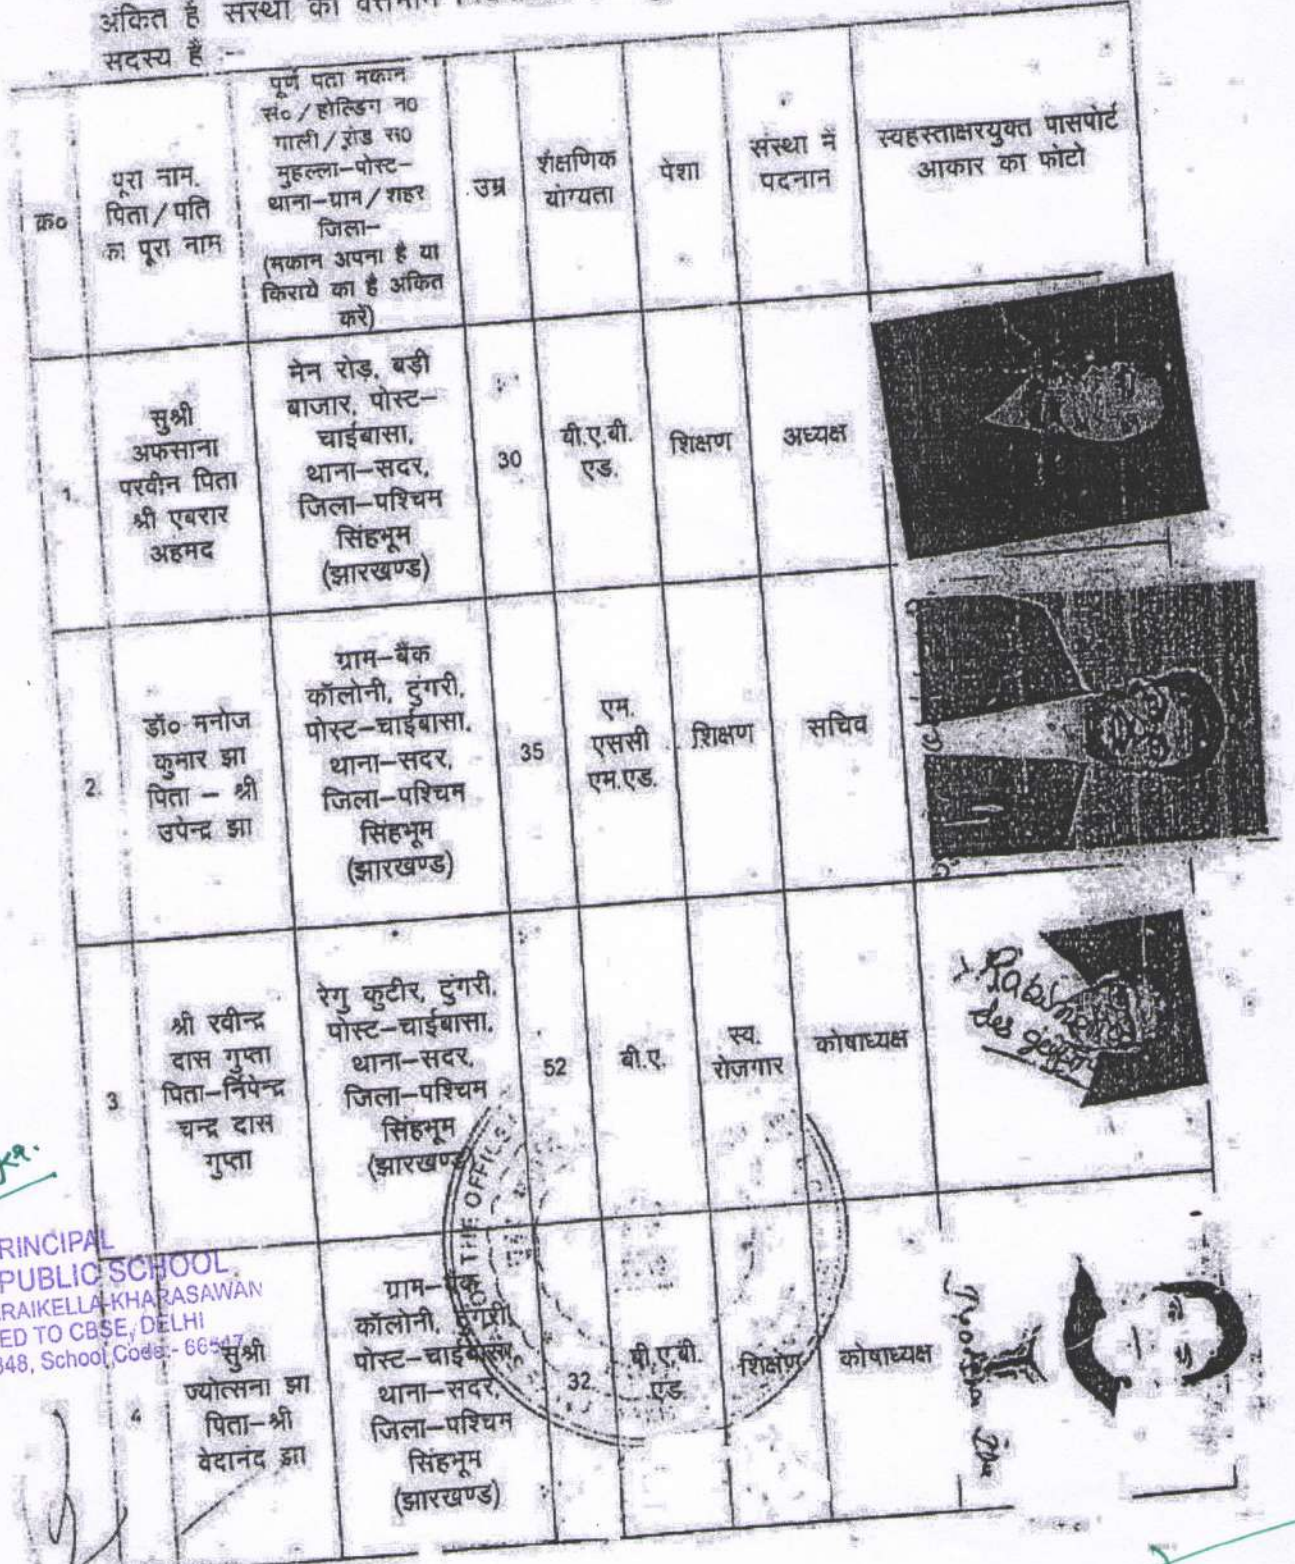 अंकित है संस्था का वर्तमान
सदस्य हैं :-
क्र०
पूरा नाम,
पिता/पति
का पूरा नाम
पूर्ण पता मकान
सं०/होल्डिंग न०
गाली/रोड स०
मुहल्ला-पोस्ट-
थाना-ग्राम/शहर
जिला-
(मकान अपना है या
किराये का है अंकित
करें)
उम्र
शैक्षणिक
योग्यता
पेशा
संस्था में
पदनान
स्वहस्ताक्षरयुक्त पासपोर्ट
आकार का फोटो
1
सुश्री
अफसाना
परवीन पिता
श्री एबरार
अहमद
मेन रोड़, बड़ी
बाजार, पोस्ट-
चाईबासा,
थाना-सदर,
जिला-पश्चिम
सिंहभूम
(झारखण्ड)
30
बी.ए.बी.
एड.
शिक्षण
अध्यक्ष
2.
डॉ० मनोज
कुमार झा
पिता - श्री
उपेन्द्र झा
ग्राम-बैंक
कॉलोनी, टुंगरी,
पोस्ट-चाईबासा,
थाना-सदर,
जिला-पश्चिम
सिंहभूम
(झारखण्ड)
35
एम.
एससी
एम.एड.
शिक्षण
सचिव
3
श्री रवीन्द्र
दास गुप्ता
पिता-निपेन्द्र
चन्द्र दास
गुप्ता
रेगु कुटीर, टुंगरी,
पोस्ट-चाईबासा,
थाना-सदर,
जिला-पश्चिम
सिंहभूम
(झारखण्ड
52
बी.ए.
स्व.
रोजगार
कोषाध्यक्ष
4
सुश्री
ज्योत्सना झा
पिता-श्री
वेदानंद झा
ग्राम-बैंक
कॉलोनी, टुंगरी,
पोस्ट-चाईबासा,
थाना-सदर,
जिला-पश्चिम
सिंहभूम
(झारखण्ड)
32
बी.ए.बी.
एड.
शिक्षण
कोषाध्यक्ष
THE OFFICE
RINCIPAL
PUBLIC SCHOOL
RAIKELLA-KHARASAWAN
ED TO CBSE, DELHI
348, School Code:- 66547